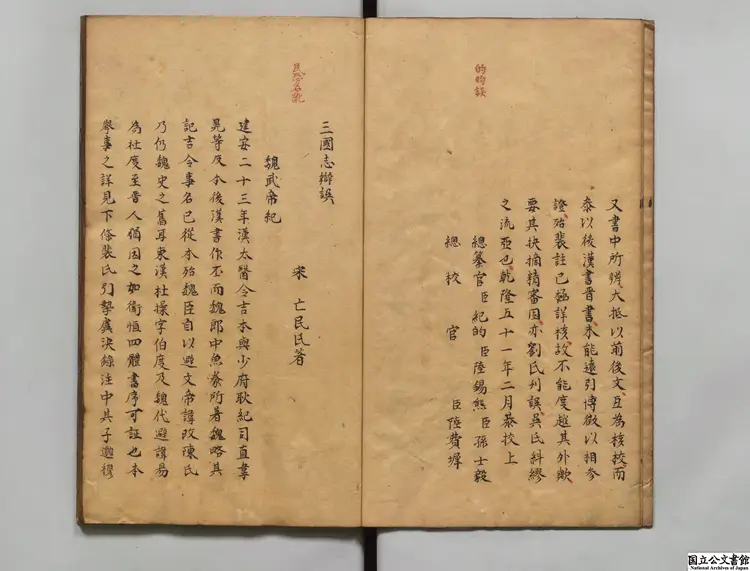 又書中所辨大抵以前後文互為核校而
泰以後漢書晉書未能遠引博徵以相參
證殆裴註已極詳核故不能度越其外歟
要其抉摘精審固亦劉氏刋誤吳氏糾繆
之流亞也乾隆五十一年二月恭校上
總纂官臣紀昀臣陸錫熊臣孫士毅
總校官臣陸費墀
三國志辨誤
宋亡民氏著
魏武帝紀
建安二十三年漢太醫令吉本與少府耿紀司直韋
晃等反本後漢書作丕而魏郎中魚豢所著魏略具
記吉令事名已從本殆魏臣自以避文帝諱改陳氏
乃仍魏史之舊耳東漢杜操字伯度及魏代避諱易
為杜度至晉人猶因之如衛恒四體書序可証也本
舉事之詳見下條裴氏引摯虞決錄注中其子邈穆
国立公文書館
National Archives of Japan